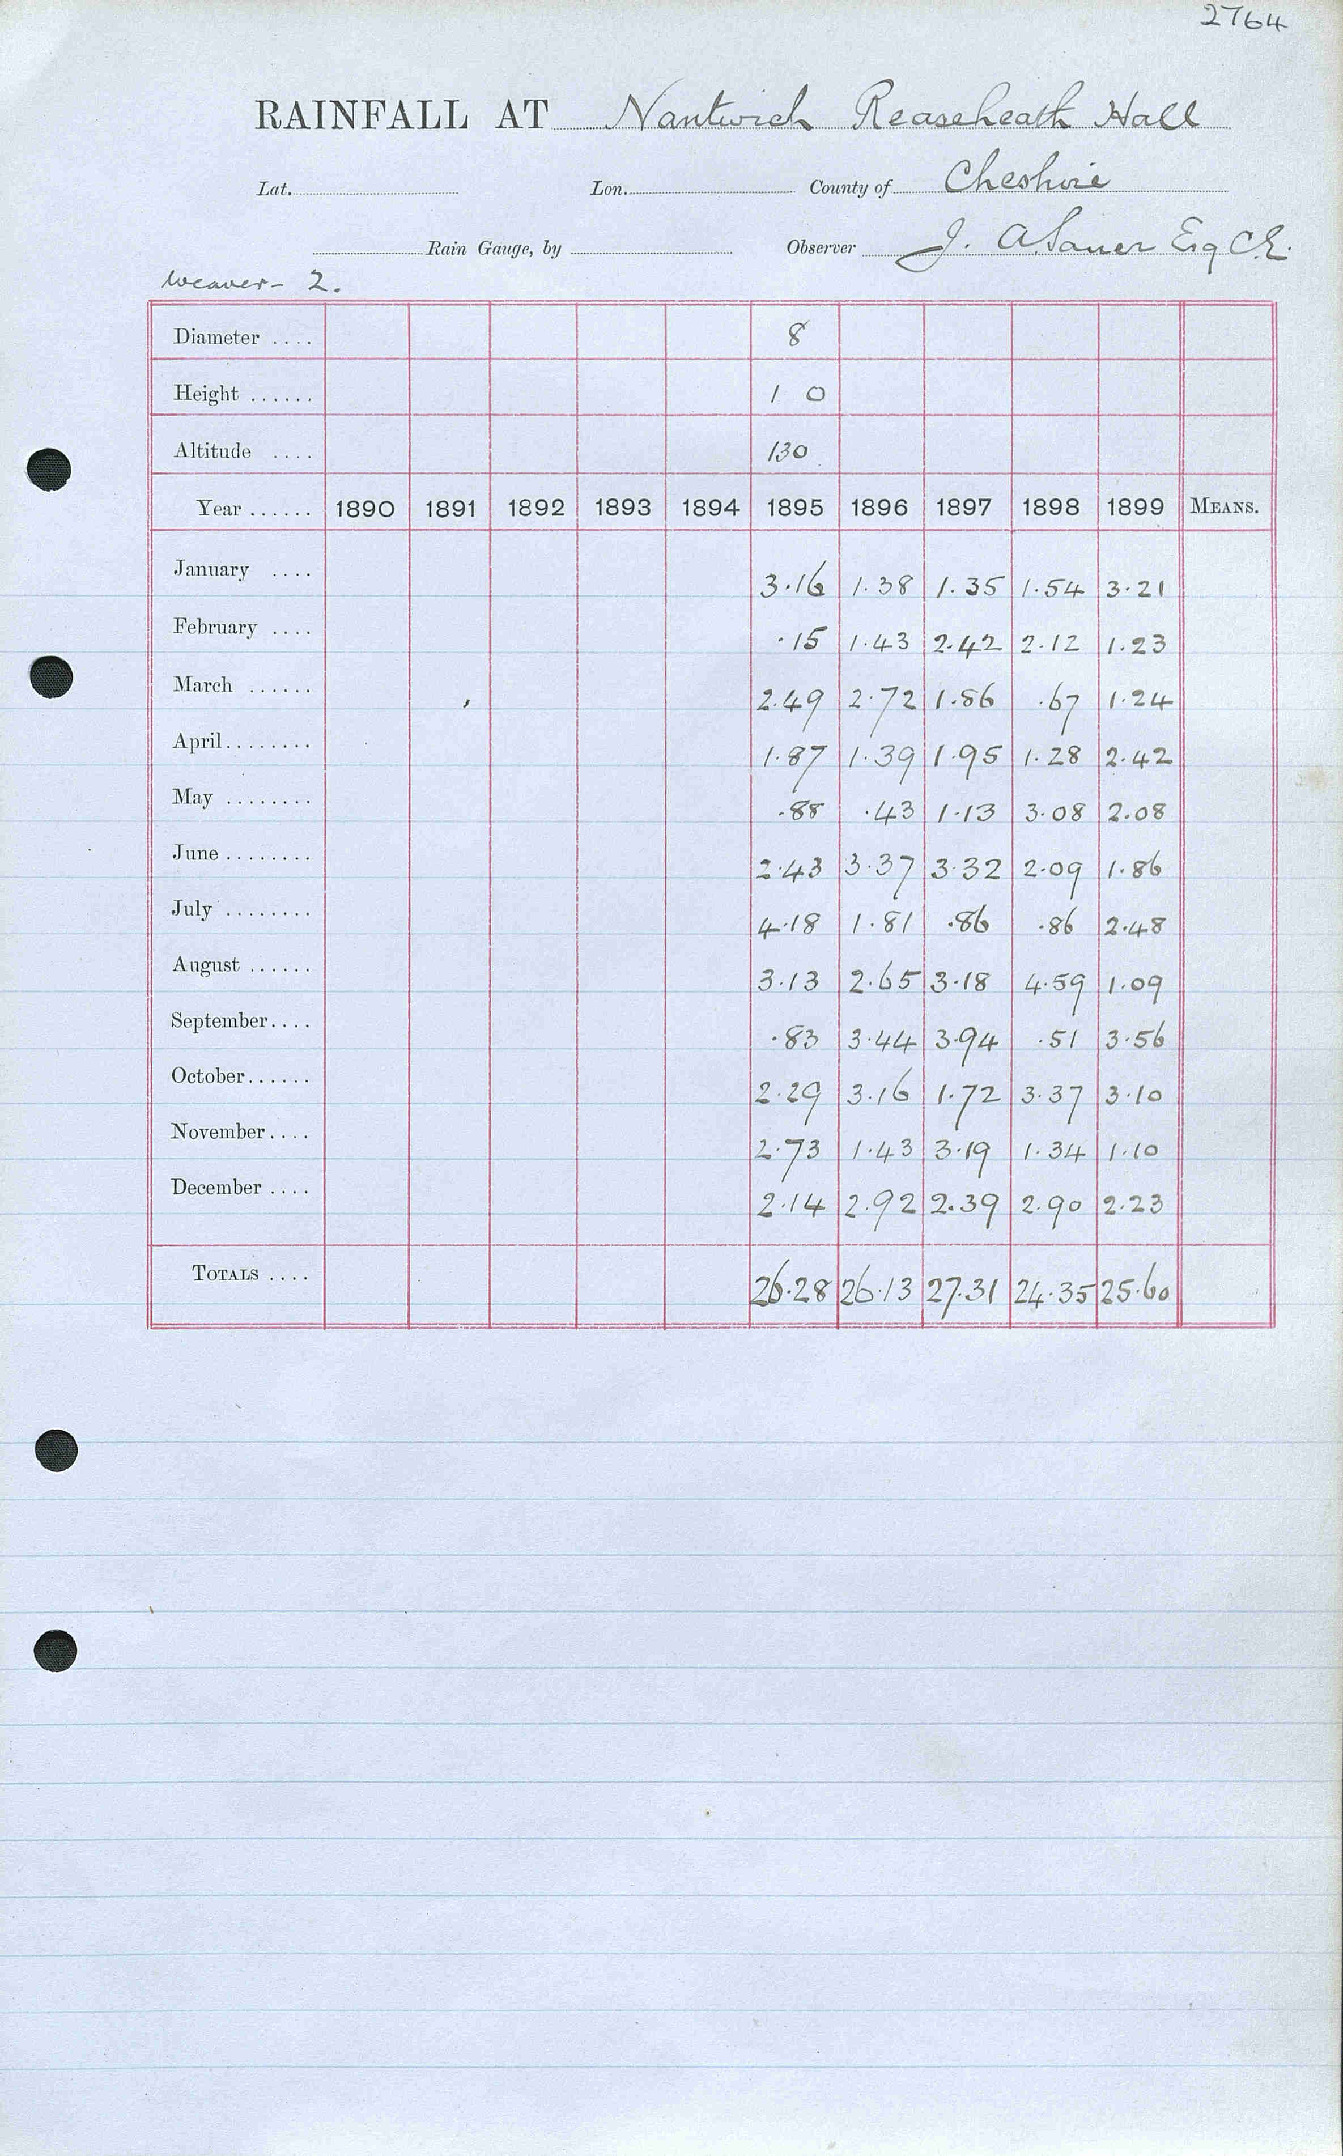 2764
RAINFALL AT Nantwich Reaseheath Hall
Lat. Lon. County of Cheshire
Rain Gauge, by Observer J. A. Saner Esq C.E.
Weaver - 2.
Diameter .... 8
Height ...... 1 0
Altitude .... 130
Year ...... 1890 1891 1892 1893 1894 1895 1896 1897 1898 1899 MEANS.
January .... 3.16 1.38 1.35 1.54 3.21
February .... .15 1.43 2.42 2.12 1.23
March ...... 2.49 2.72 1.86 .67 1.24
April........ 1.87 1.39 1.95 1.28 2.42
May ........ .88 .43 1.13 3.08 2.08
June ........ 2.43 3.37 3.32 2.09 1.86
July ........ 4.18 1.81 .86 .86 2.48
August ...... 3.13 2.65 3.18 4.59 1.09
September.... .83 3.44 3.94 .51 3.56
October...... 2.29 3.16 1.72 3.37 3.10
November.... 2.73 1.43 3.19 1.34 1.10
December .... 2.14 2.92 2.39 2.90 2.23
TOTALS .... 26.28 26.13 27.31 24.35 25.60